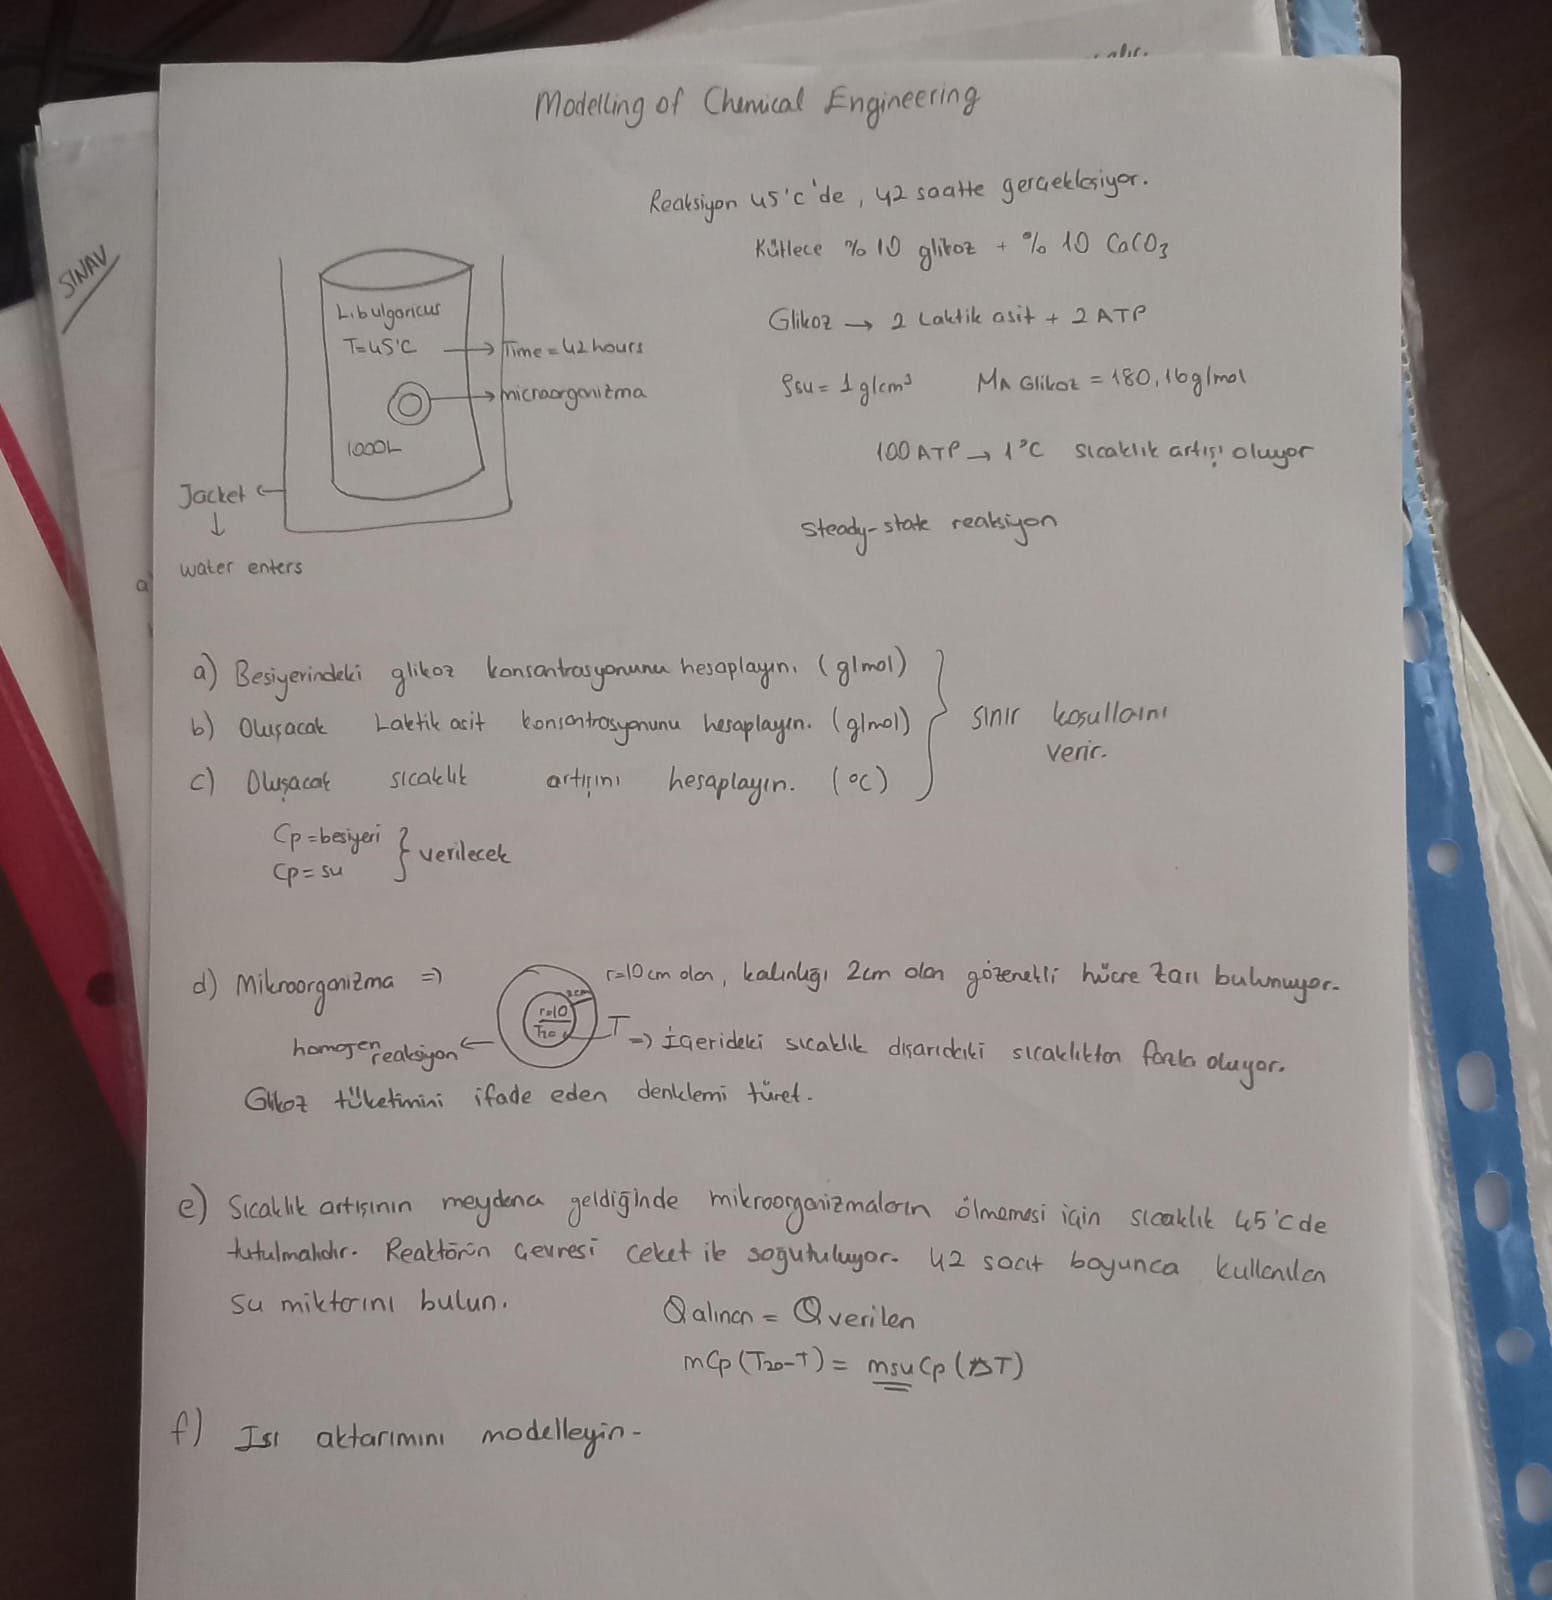 Modelling of Chemical Engineering
SINAV
Reaksiyon 45°C'de, 42 saatte gerçekleşiyor.
Kütlece % 10 glikoz + % 10 CaCO3
Glikoz → 2 Laktik asit + 2 ATP
ρsu = 1 g/cm³ MA Glikoz = 180,16 g/mol
100 ATP → 1°C sıcaklık artışı oluyor
Steady-state reaksiyon
L.bulgaricus
T=45°C → Time = 42 hours
→ microorganizma
1000L
Jacket ←
↓
water enters
a) Besiyerindeki glikoz konsantrasyonunu hesaplayın. (g/mol)
b) Oluşacak Laktik asit konsantrasyonunu hesaplayın. (g/mol)
c) Oluşacak sıcaklık artışını hesaplayın. (°C)
sınır koşullarını
verir.
Cp = besiyeri
Cp = su
} verilecek
d) Mikroorganizma ⇒ r=10cm olan, kalınlığı 2cm olan gözenekli hücre zarı bulunuyor.
2cm
r=10
homojen reaksiyon ← T ⇒ İçerideki sıcaklık dışarıdaki sıcaklıktan fazla oluyor.
Glikoz tüketimini ifade eden denklemi türet.
e) Sıcaklık artışının meydana geldiğinde mikroorganizmaların ölmemesi için sıcaklık 45°C de
tutulmalıdır. Reaktörün çevresi ceket ile soğutuluyor. 42 saat boyunca kullanılan
su miktarını bulun.
Qalınan = Qverilen
mCp(T20-T) = msuCp(ΔT)
f) Isı aktarımını modelleyin.